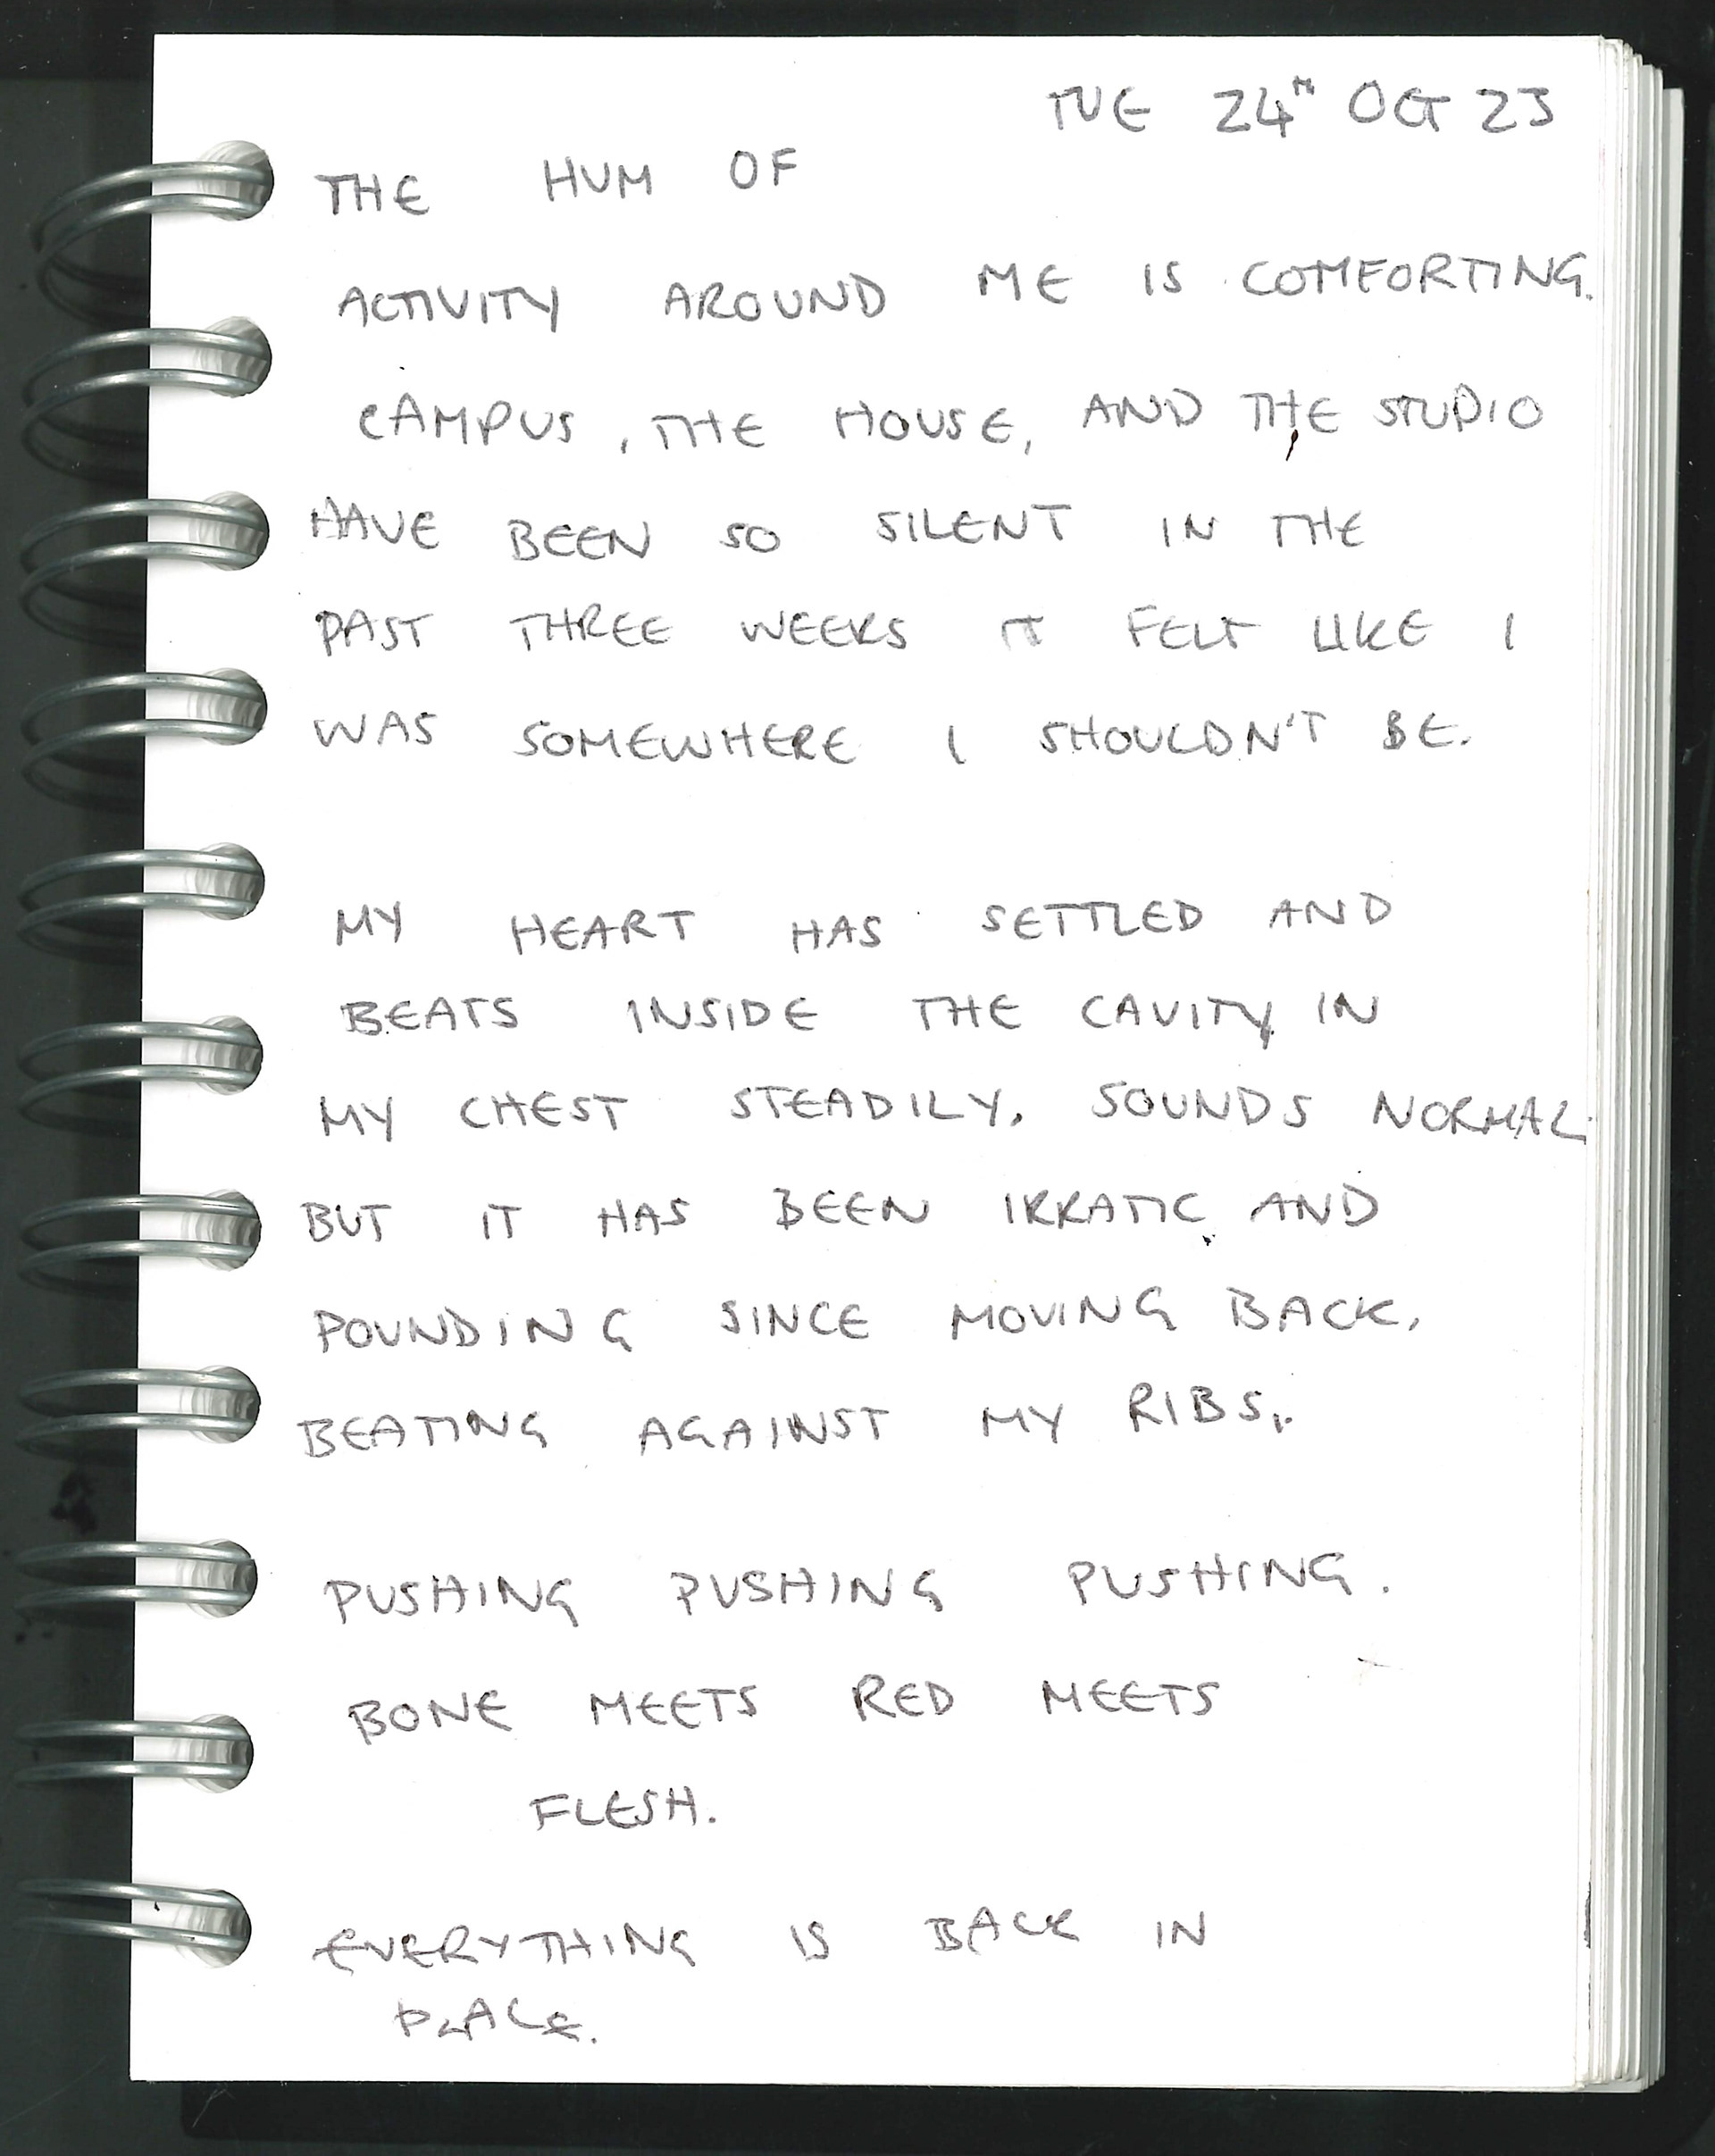 TUE 24TH OCT 23
THE HUM OF
ACTIVITY AROUND ME IS COMFORTING.
CAMPUS, THE HOUSE, AND THE STUDIO
HAVE BEEN SO SILENT IN THE
PAST THREE WEEKS IT FELT LIKE I
WAS SOMEWHERE I SHOULDN'T BE.
MY HEART HAS SETTLED AND
BEATS INSIDE THE CAVITY IN
MY CHEST STEADILY, SOUNDS NORMAL
BUT IT HAS BEEN IRRATIC AND
POUNDING SINCE MOVING BACK,
BEATING AGAINST MY RIBS.
PUSHING PUSHING PUSHING.
BONE MEETS RED MEETS
FLESH.
EVERYTHING IS BACK IN
PLACE.